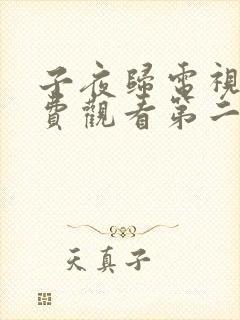 子夜歸電視
費觀看第二
天真子